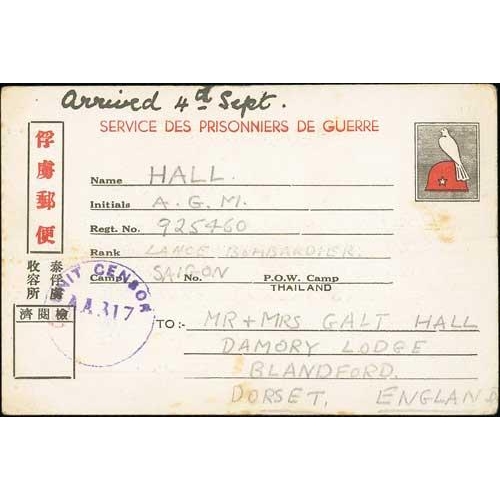 Arrived 4th Sept.
SERVICE DES PRISONNIERS DE GUERRE
俘虜郵便
泰俘虜收容所
檢閱濟
Name HALL.
Initials A. G. M.
Regt. No. 925460
Rank LANCE BOMBARDIER.
Camp SAIGON No. P.O.W. Camp
THAILAND
UNIT CENSOR
AA317
TO:- MR + MRS GALT HALL
DAMORY LODGE
BLANDFORD.
DORSET, ENGLAND